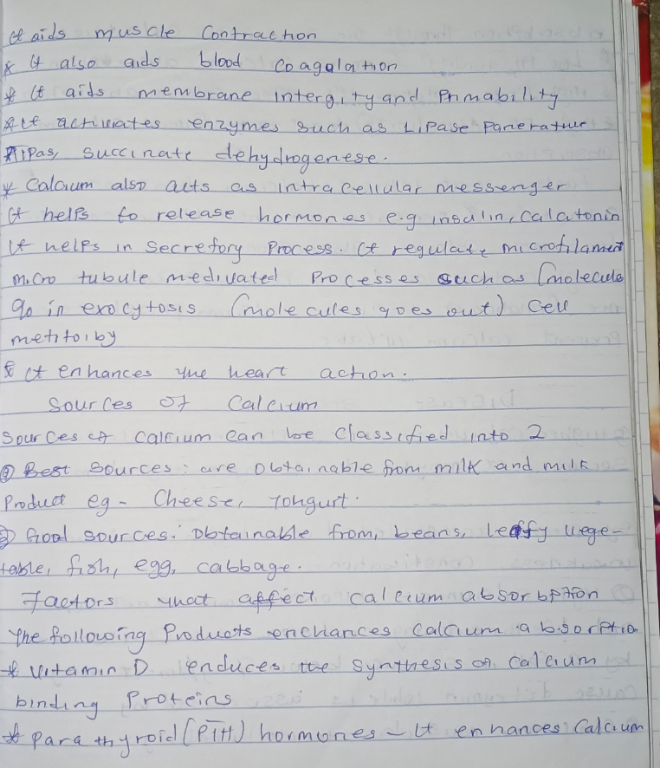 It aids muscle contraction
* It also aids blood coagalation
* It aids membrane intergity and Primability
* It activates enzymes such as Lipase
lipas, succinate dehydrogenese.
* Calcium also acts as intracellular messenger
It helps to release hormones e.g insulin, calatonin
It helps in secretory Process. It regulate microfilament
micro tubule medivated Processes such as (molecule
go in exocytosis (molecules goes out) cell
* It enhances the heart action.
Sources of Calcium
Sources of calcium can be classified into 2
① Best sources: are obtainable from milk and milk
Product eg - Cheese, yorgurt.
② Good sources: obtainable from, beans, leafy vege-
table, fish, egg, cabbage.
Factors that affect calcium absorbption
The following Products enchances calcium absorptio
* vitamin D enduces the synthesis of calcium
binding Proteins
* Para thyroid (PTH) hormones - It enhances Calcium